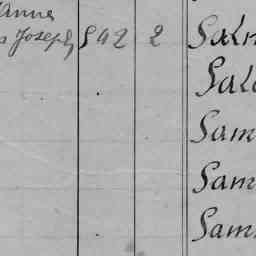 Anna
Joseph 542 2 Saln
Sal
Sam
Sam
Sam